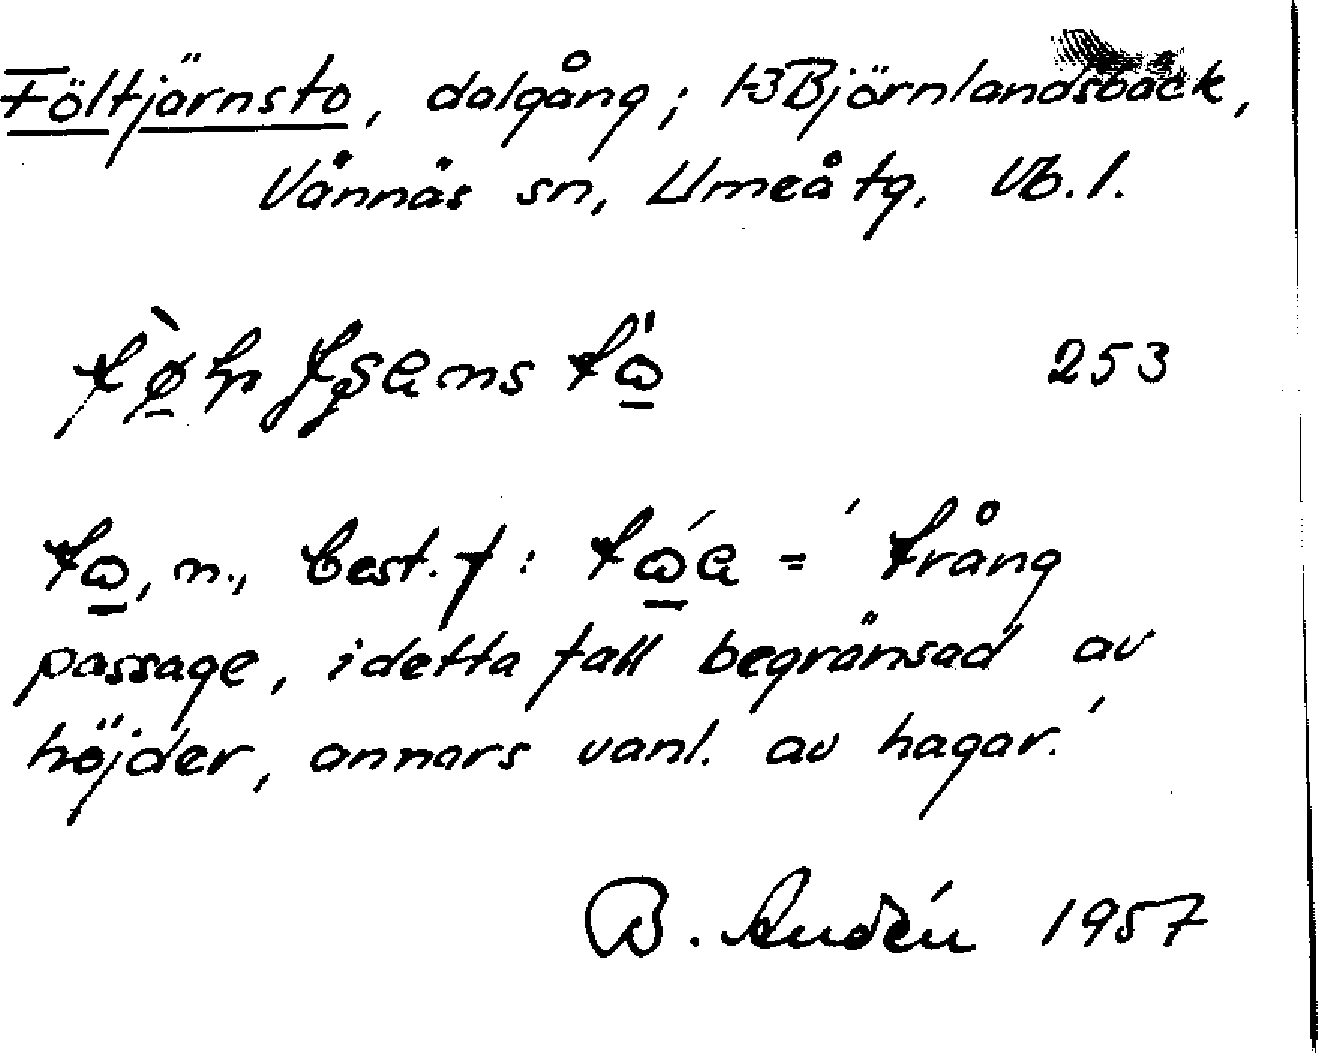 Föltjärnsto, dalgång; 13 Björnlandsbäck,
Vännäs sn, Umeå tg. Vb. l.
253
n., best. f: = ' trång
passage, i detta fall begränsad av
höjder, annars vanl. av hagar.'
B. Audén 1957